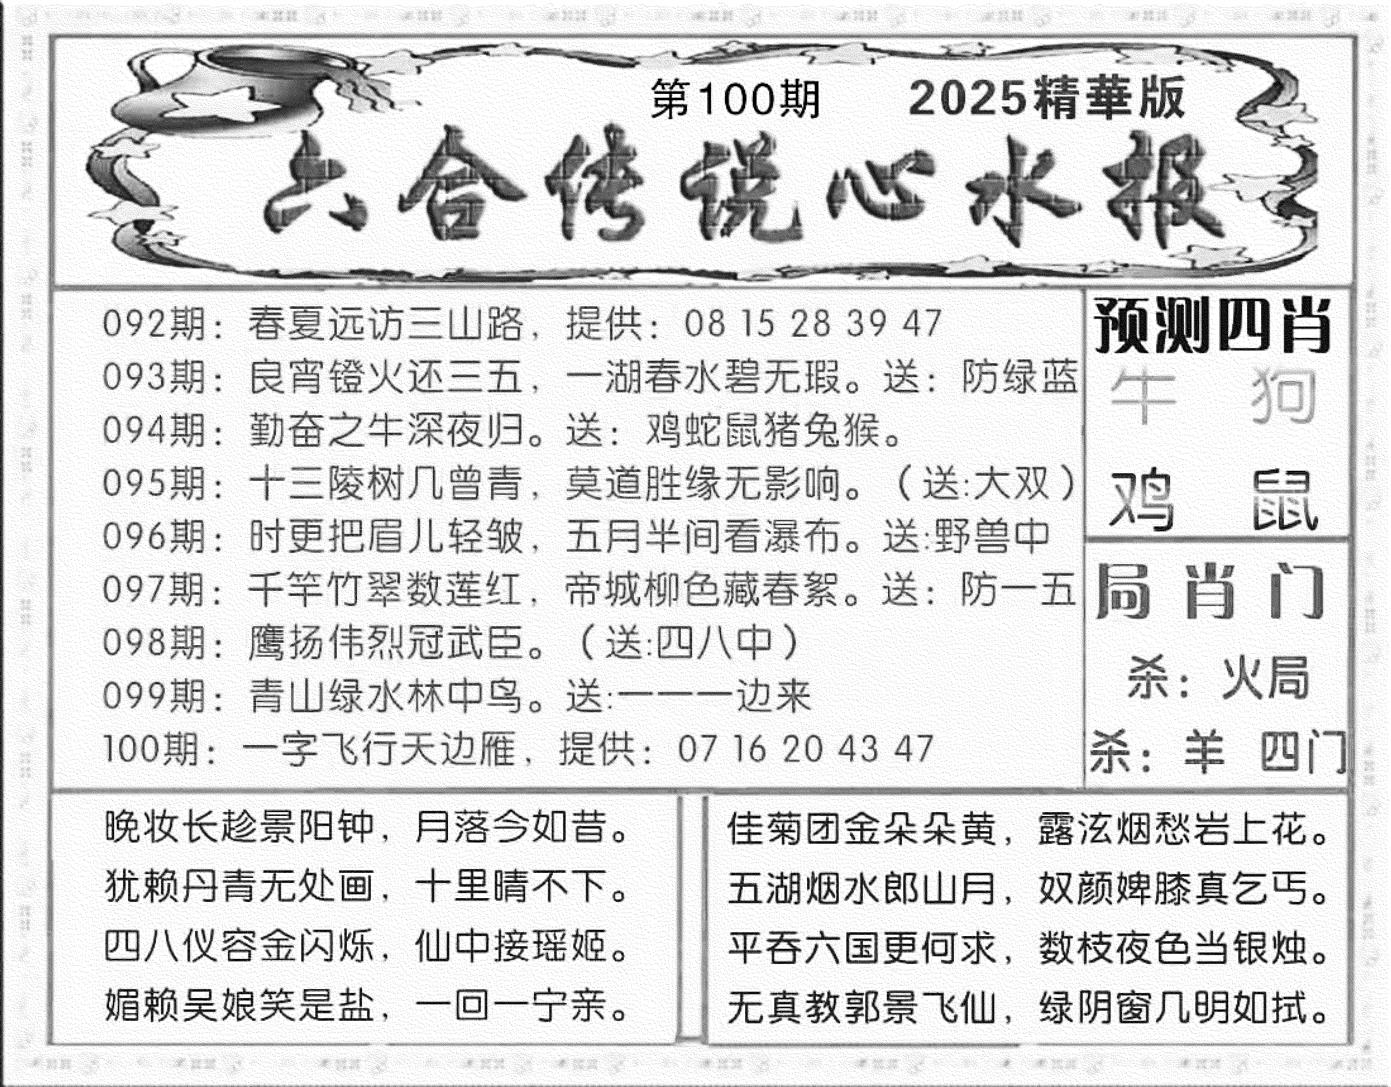 第100期 2025精華版
六合传说心水报
092期：春夏远访三山路，提供：08 15 28 39 47
093期：良宵镫火还三五，一湖春水碧无瑕。送：防绿蓝
094期：勤奋之牛深夜归。送：鸡蛇鼠猪兔猴。
095期：十三陵树几曾青，莫道胜缘无影响。（送:大双）
096期：时更把眉儿轻皱，五月半间看瀑布。送:野兽中
097期：千竿竹翠数莲红，帝城柳色藏春絮。送：防一五
098期：鹰扬伟烈冠武臣。（送:四八中）
099期：青山绿水林中鸟。送:一一一边来
100期：一字飞行天边雁，提供：07 16 20 43 47
预测四肖
牛 狗
鸡 鼠
局肖门
杀：火局
杀：羊 四门
晚妆长趁景阳钟，月落今如昔。
犹赖丹青无处画，十里晴不下。
四八仪容金闪烁，仙中接瑶姬。
媚赖吴娘笑是盐，一回一宁亲。
佳菊团金朵朵黄，露泫烟愁岩上花。
五湖烟水郎山月，奴颜婢膝真乞丐。
平吞六国更何求，数枝夜色当银烛。
无真教郭景飞仙，绿阴窗几明如拭。